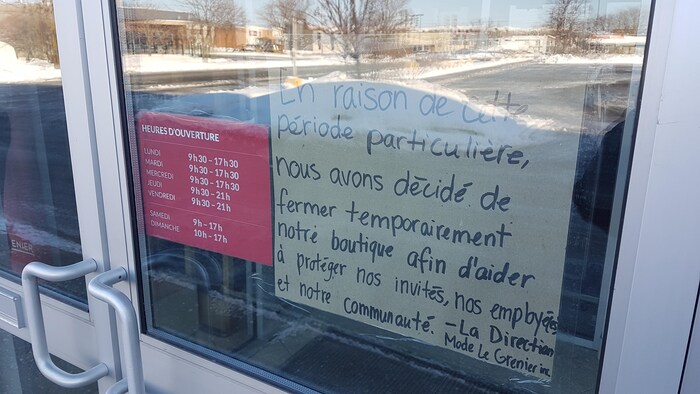 HEURES D'OUVERTURE
LUNDI 9h30 - 17h30
MARDI 9h30 - 17h30
MERCREDI 9h30 - 17h30
JEUDI 9h30 - 21h
VENDREDI 9h30 - 21h
SAMEDI 9h - 17h
DIMANCHE 10h - 17h
ENIER
En raison de cette
période particulière,
nous avons décidé de
fermer temporairement
notre boutique afin d'aider
à protéger nos invités, nos employés
et notre communauté. - La Direction
Mode Le Grenier inc